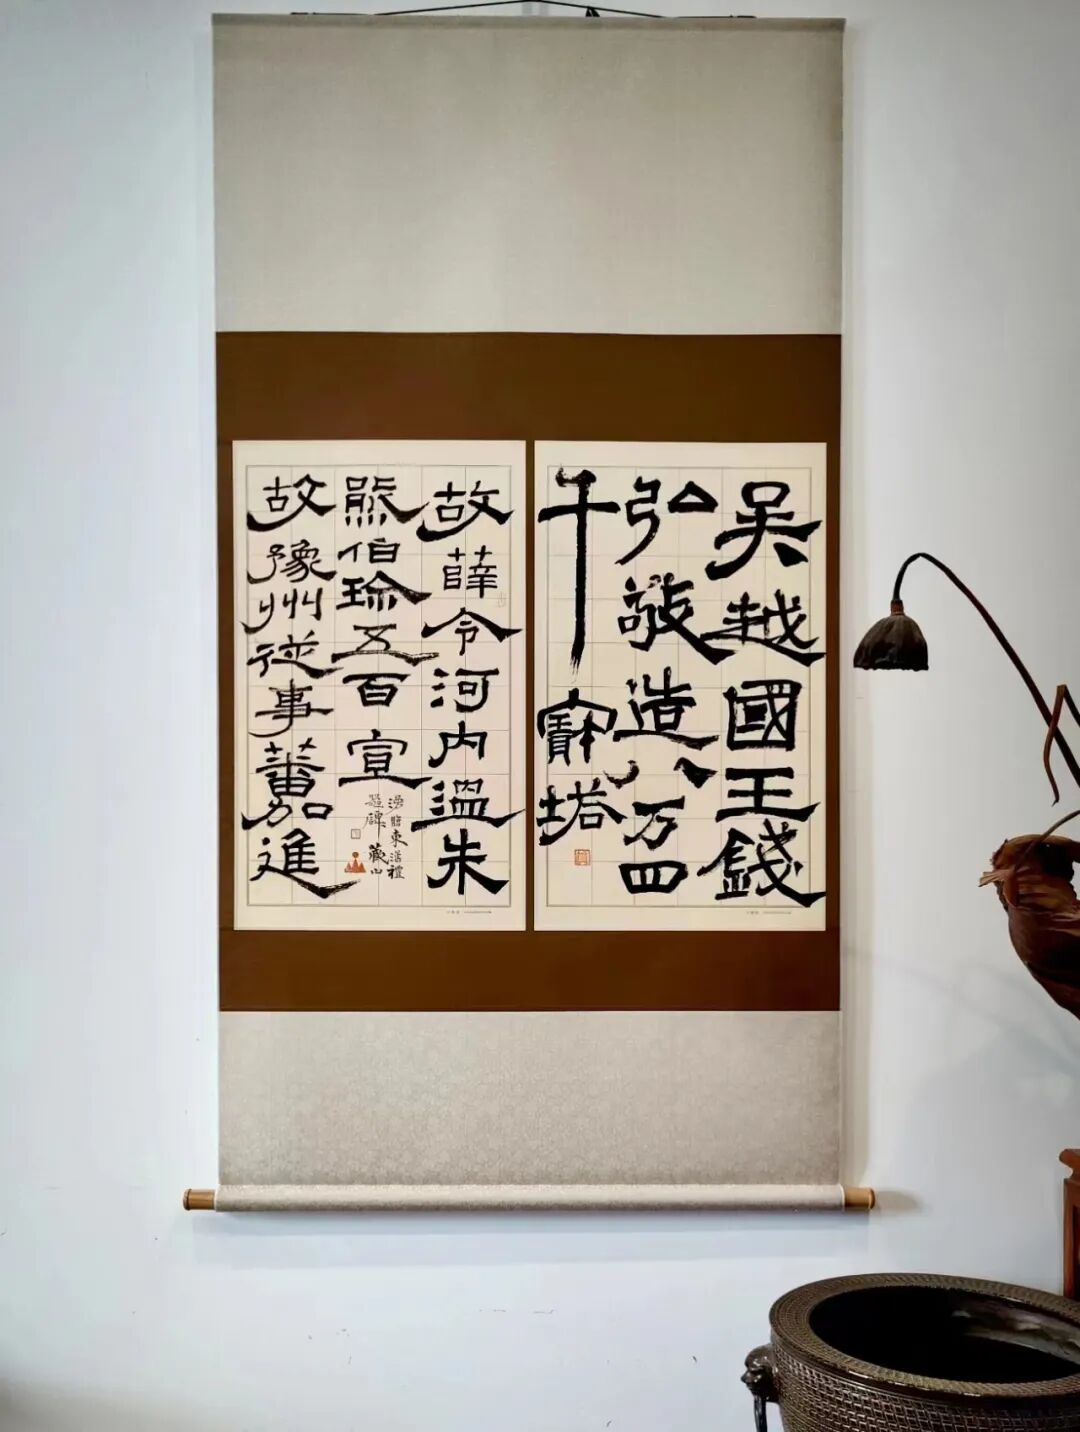 吳越國王錢
弘敬造八万四
千寶塔
故薛令河內溫朱
熊伯珍五百宣
臨東漢禮
器碑藏山
故豫州從事蕃加進